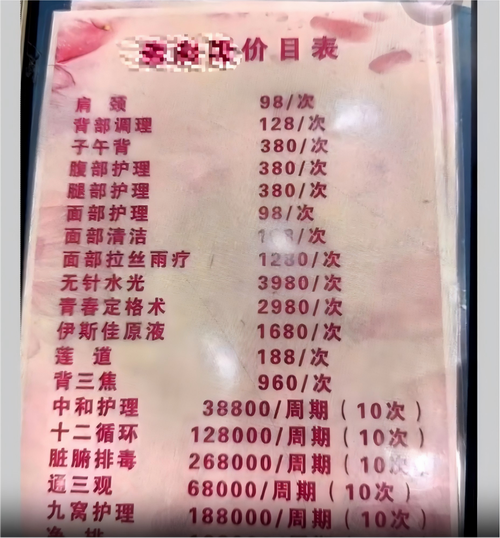 价目表
肩 颈 98/次
背部调理 128/次
子午背 380/次
腹部护理 380/次
腿部护理 380/次
面部护理 98/次
面部清洁
面部拉丝雨疗 1280/次
无针水光 3980/次
青春定格术 2980/次
伊斯佳原液 1680/次
莲 道 188/次
背三焦 960/次
中和护理 38800/周期(10次)
十二循环 128000/周期(10次)
脏腑排毒 268000/周期(10次)
通三观 68000/周期(10次)
九窝护理 188000/周期(10次)